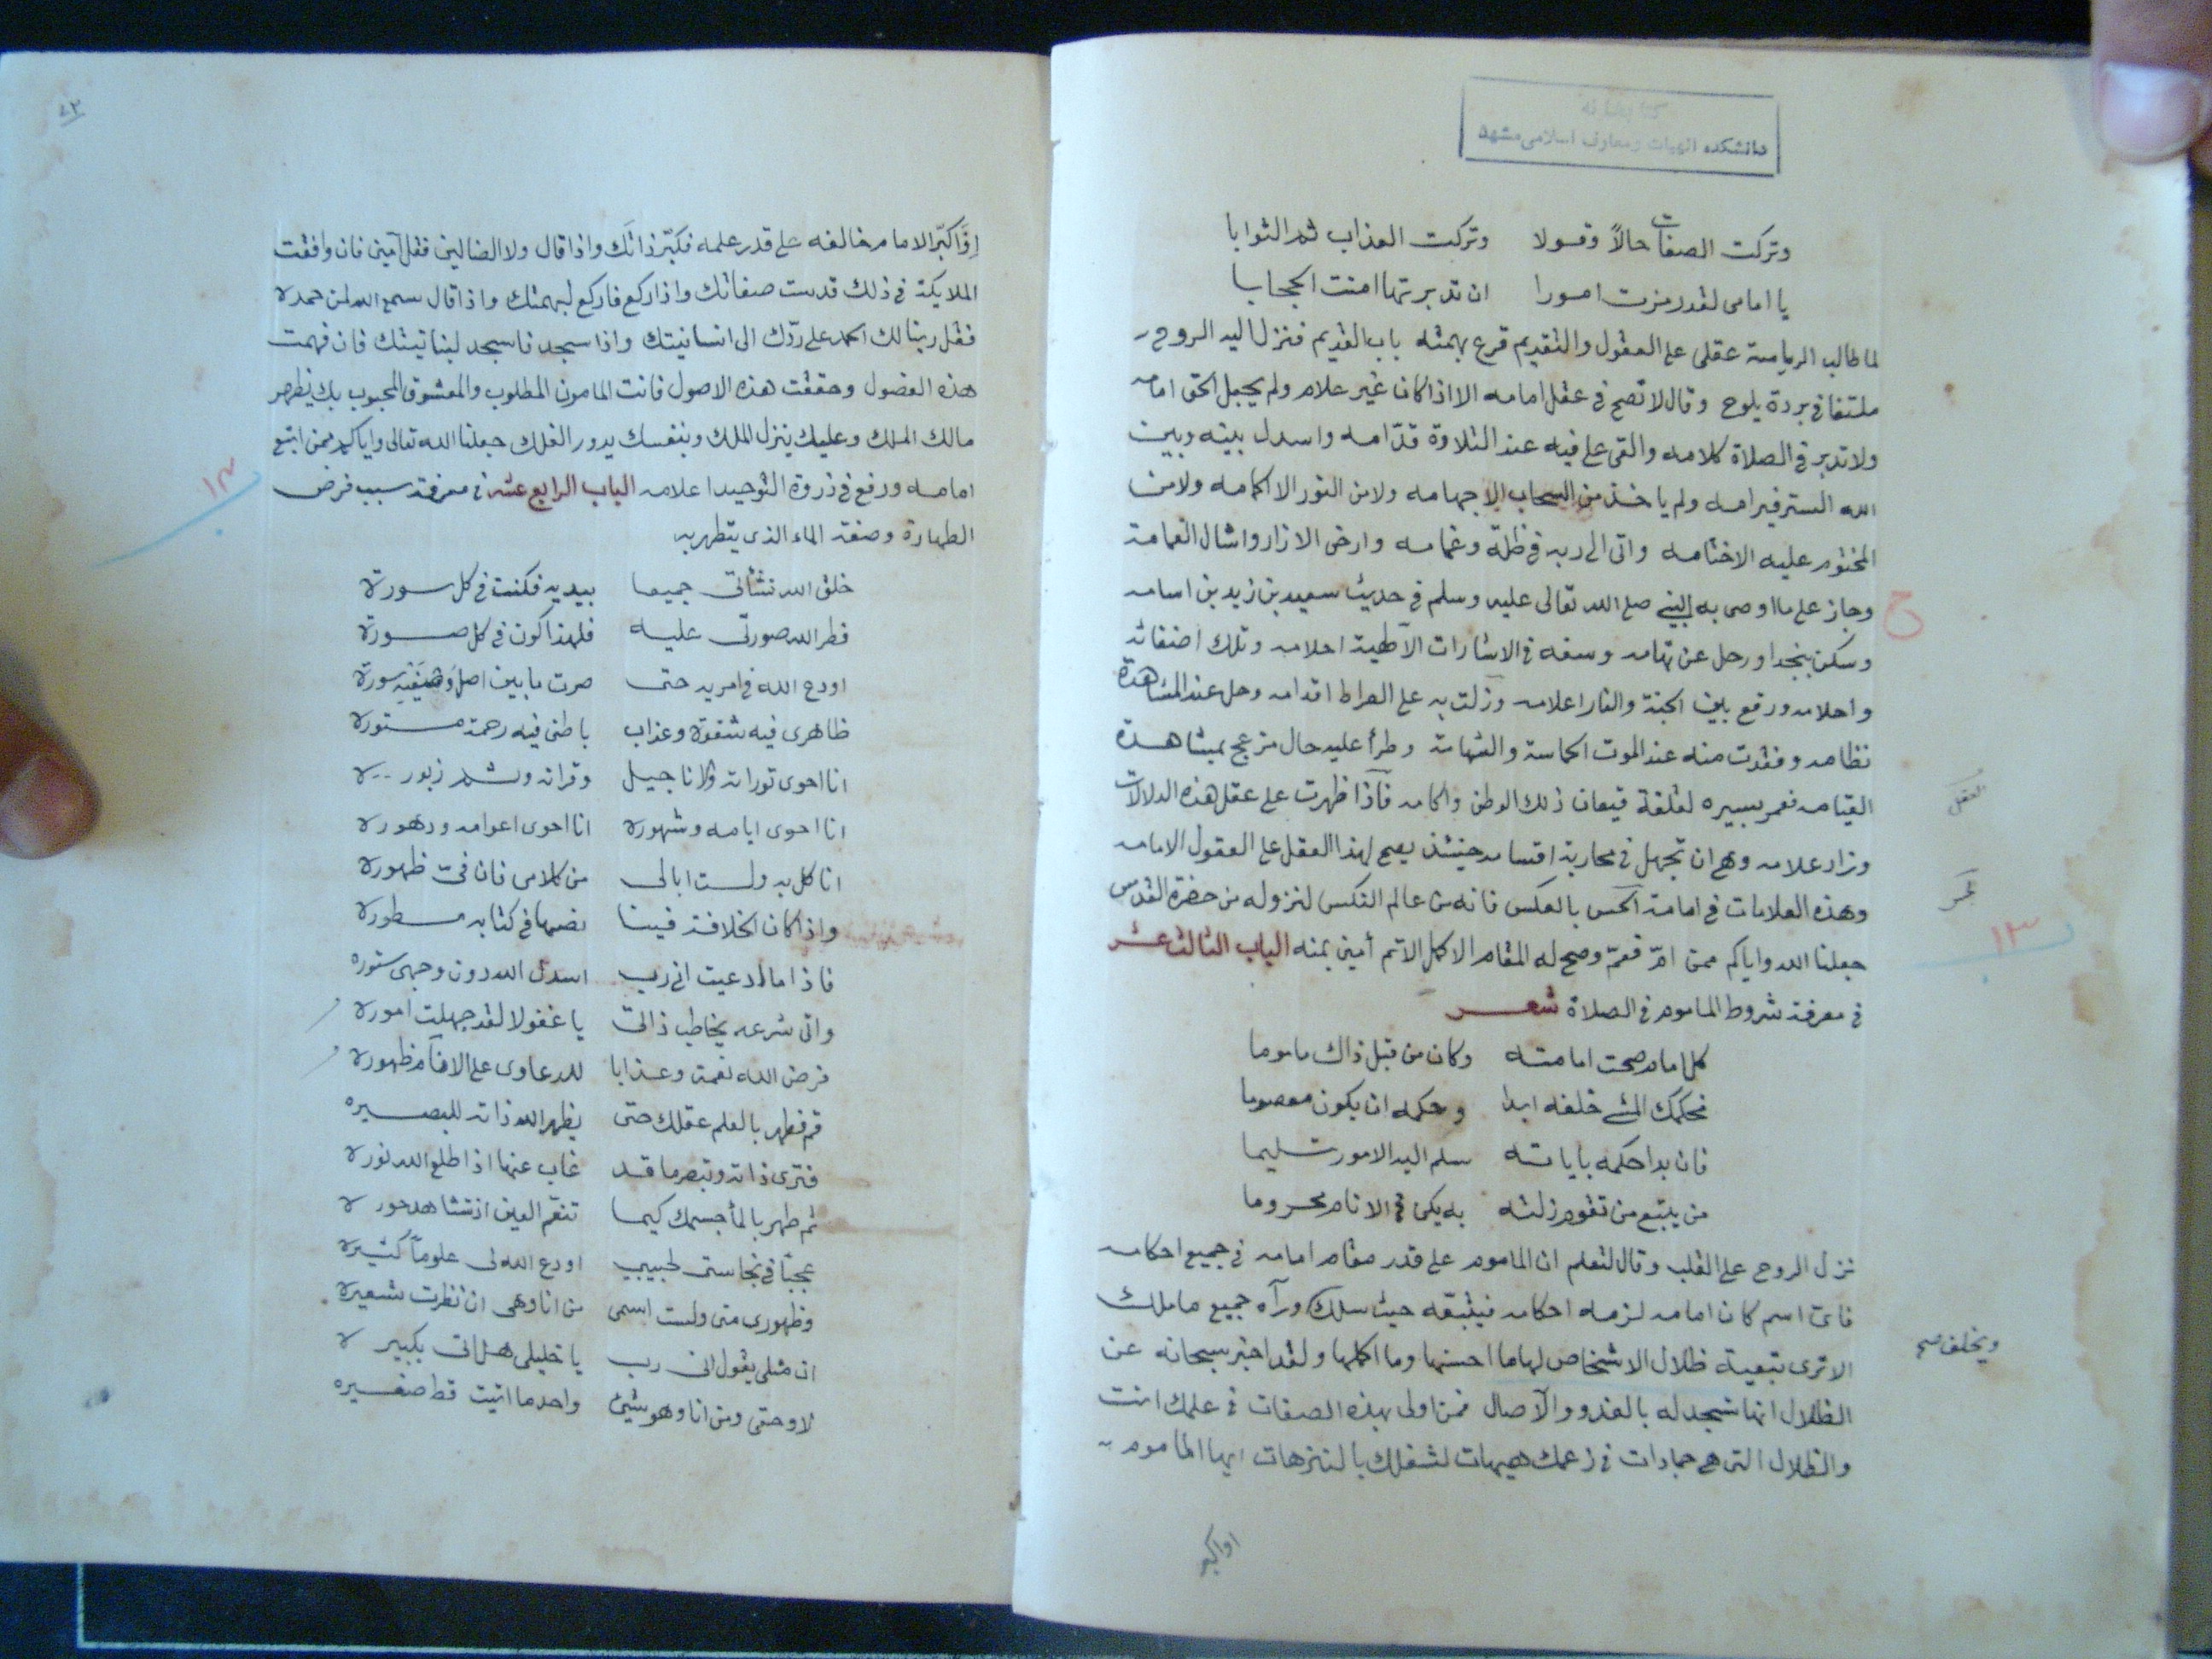 دانشكده الهيات ومعارف اسلامى مشهد
وتركت الصفات حالاً وقولا وتركت العذاب ثم الثوابا
يا امامى لقد رمزت امورا ان تدبرتها امنت الحجابا
لما طالب الرياسة عقلى على العقول والتقديم قرع بهمته باب القديم فنزل اليه الروح
ملتفا فى بردة يلوح وقال لا تصح فى عقل امامه الا اذا كان غير علام ولم يجعل الحق امامه
ولا تدبر فى الصلاة كلامه والقى على فيه عند التلاوة قدامه واسدل بينه وبين
الله الستر فيرامه ولم ياخذ من السحاب الا جهامه ولا من النور الا اكمامه ولا من
المختوم عليه الا ختامه واتى الى ربه فى ظلة وغمامه وارخى الازار واشال العمامة
وجاز على ما اوصى به النبى صلى الله تعالى عليه وسلم فى حديث سعيد بن زيد بن اسامه
وسكن بنجد او رحل عن تهامه وسفه فى الاشارات الالهية احلامه وتلك اضغاثه
واحلامه ورفع بين الجنة والنار اعلامه وزلت به على الصراط اقدامه وحل عند المشاهدة
نظامه وفقدت منه عند الموت الحماسة والشهامة وطرأ عليه حال مزعج بمشاهدة
القيامه نعم بسيره لقلقة قيعان ذلك الوطن واكامه فاذا ظهرت على عقل هذه الدلالات
وزاد علامه وهى ان تجهل فى محاربة اقسامه حينئذ يصح لهذا العقل على العقول الامامه
العقل
وهذه العلامات فى امامة الحس بالعكس فانه من عالم النكس لنزوله من حضرة القدس
جعلنا الله واياكم ممن امّ فعمّ وصح له المقام الاكمل الاتم أمين بمنه الباب الثالث عشر
١٣
فى معرفة شروط الماموم فى الصلاة شعر
كل امام صحت امامته وكان من قبل ذاك ماموما
فحكمك المشى خلفه ابدا وحكمه ان يكون معصوما
فان بدا حكمه باياته سلم اليه الامور تسليما
من يتبع من تقوم زلته به يكن فى الانام محروما
نزل الروح على القلب وقال لتعلم ان الماموم على قدر مقام امامه فى جميع احكامه
فاى اسم كان امامه لزمه احكامه فيتبعه حيث سلك وراه جميع ما ملك
ويخلف صح
الا ترى تبعية ظلال الاشخاص لها ما احسنها وما اكملها ولقد اخبر سبحانه عن
الظلال انها تسجد له بالغدو والآصال فمن اولى بهذه الصفات فى علمك انت
والظلال التى هى جمادات فى زعمك هيهات لشغلك بالتنزهات ايها الماموم
٧٢
اذا كبّر الامام خالفه على قدر علمه فكبّر ذاتك واذا قال ولا الضالين فقل آمين فان وافقت
الملايكة فى ذلك قدست صفاتك واذا ركع فاركع لبهمتك واذا قال سمع الله لمن حمده
فقل ربنا لك الحمد على ردّك الى انسانيتك واذا سجد فاسجد لنباتيتك فان فهمت
هذه الفصول وحققت هذه الاصول فانت المامون المطلوب والمعشوق المحبوب بك يظهر
مالك الملك وعليك ينزل الملك وبنفسك يدور الفلك جعلنا الله تعالى واياكم ممن اتبع
امامه ورفع فى ذروة التوحيد اعلامه الباب الرابع عشر فى معرفة سبب فرض
الطهارة وصفة الماء الذى يتطهر به
خلق الله نشأتى جميعا بيديه فكنت فى كل سورة
فطر الله صورتى عليه فلهذا اكون فى كل صورة
اودع الله فى امريه حتى صرت ما بين اصل سورة
ظاهرى فيه شقوة وعذاب باطنى فيه رحمة مستوره
انا احوى توراته والاناجيل وقرانه وثم زبوره
انا احوى ايامه وشهوره انا احوى اعوامه ودهوره
انا كل به ولست ابالى من كلامى فان فى ظهوره
واذا كان الخلافة فينا نصها فى كتابه مسطوره
فاذا ما ادعيت انى رب اسدل الله دون وجهى ستوره
واتى شرعه يخاطب ذاتى يا غفولا لقد جهلت اموره
فرض الله نعمة وعذابا للدعاوى على الانام ظهوره
قم فطهر بالعلم عقلك حتى يظهر الله ذاته للبصيره
فترى ذاته وتبصر ما قد غاب عنها اذا طلع الله نوره
ثم طهر بالمأ جسمك كيما تنعم العين اذ تشاهد حوره
عجبّا فى نجاستى لحبيبى اودع الله لى علوماً كثيره
وظهورى متى ولست اسمى من انا وهى ان نظرت شعيره
ان مثلى يقول انى رب يا خليلى هل اتى بكبيره
لا وحقى ومن انا وهو شيئ واحد ما اتيت قط صغيره